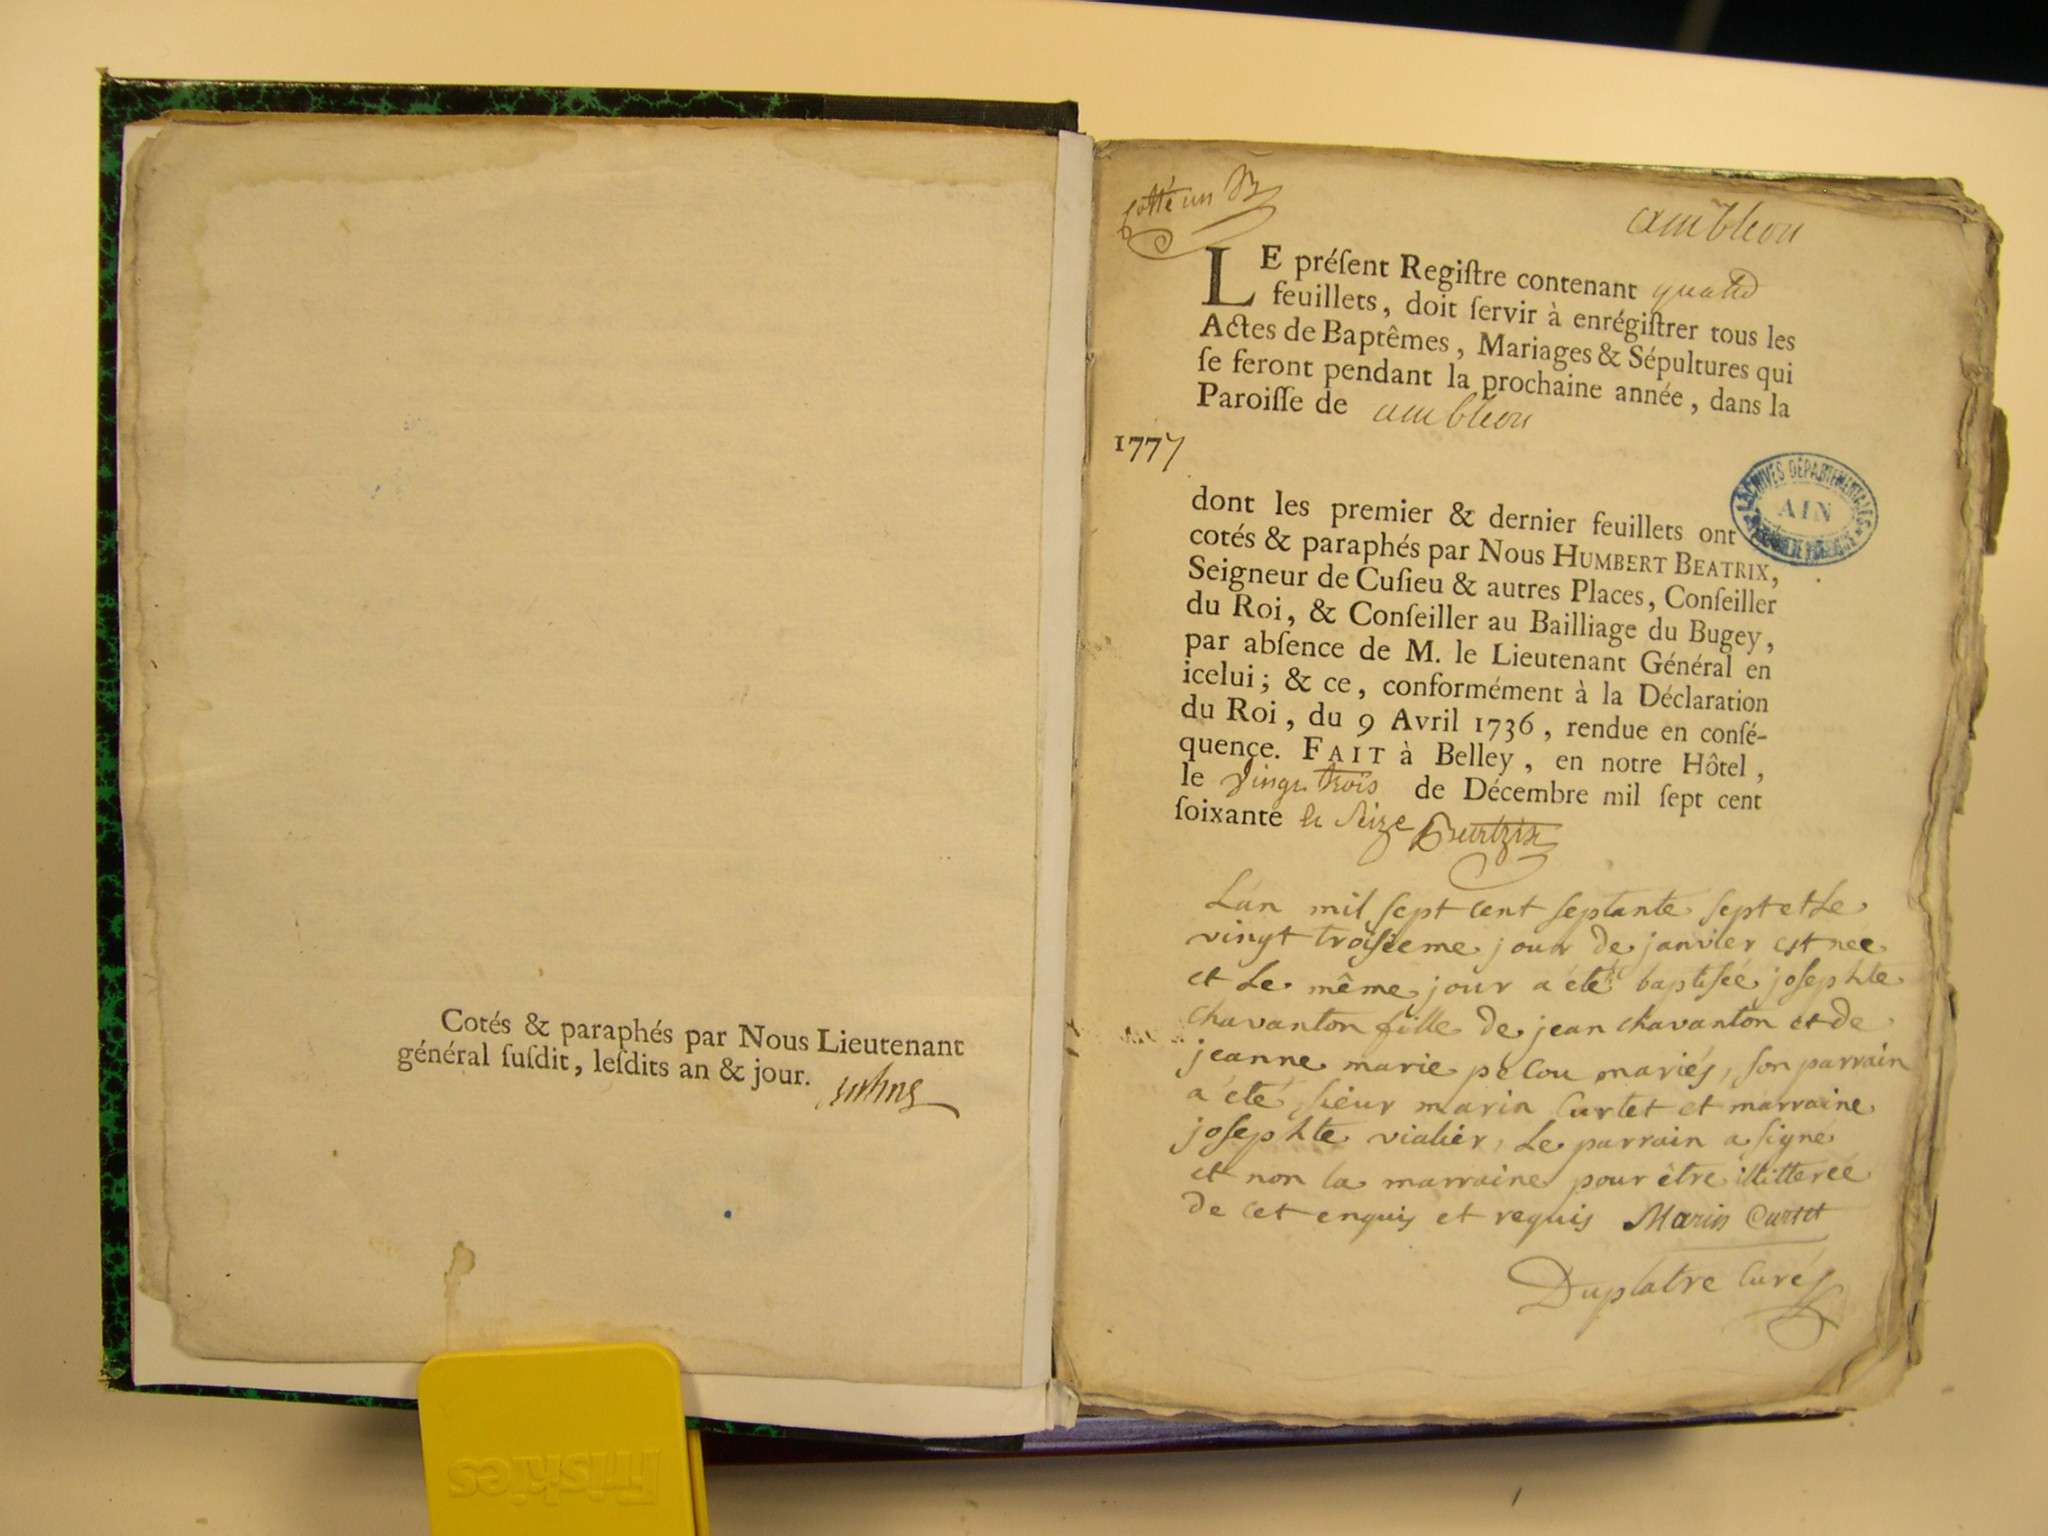 Cotés & paraphés par Nous Lieutenant
général ſuſdit, leſdits an & jour.
Cotté un
ambleon
LE préſent Regiſtre contenant quatre
feuillets, doit ſervir à enrégiſtrer tous les
Actes de Baptêmes, Mariages & Sépultures qui
ſe feront pendant la prochaine année, dans la
Paroiſſe de ambleon
1777
dont les premier & dernier feuillets ont
cotés & paraphés par Nous HUMBERT BEATRIX,
Seigneur de Cuſieu & autres Places, Conſeiller
du Roi, & Conſeiller au Bailliage du Bugey,
par abſence de M. le Lieutenant Général en
icelui; & ce, conformément à la Déclaration
du Roi, du 9 Avril 1736, rendue en conſé-
quence. FAIT à Belley, en notre Hôtel,
le vingt trois de Décembre mil ſept cent
ſoixante & ſeize
ARCHIVES DÉPARTEMENTALES
AIN
L'an mil ſept cent ſeptante ſept et Le
vingt troiſieme jour de janvier est nee
et Le même jour a été baptiſée joſephte
chavanton fille de jean chavanton et de
jeanne marie pelou mariés, ſon parrain
a été ſieur marin Curtet et marraine
joſephte vialier, Le parrain a ſigné
et non la marraine pour être illitterée
de cet enquis et requis Marin Curtet
Duplatre Curé
Friskies